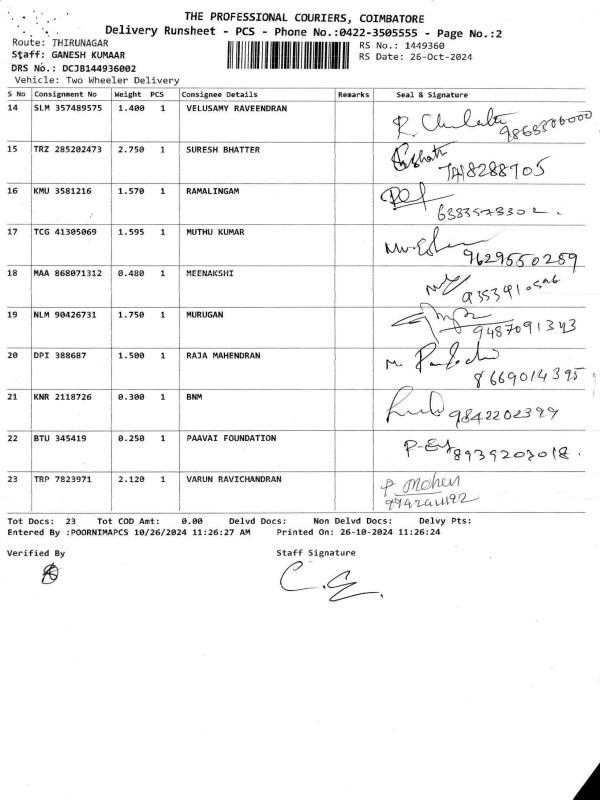 THE PROFESSIONAL COURIERS, COIMBATORE
Delivery Runsheet - PCS - Phone No.:0422-3505555 - Page No.:2
Route: THIRUNAGAR
RS No.: 1449360
Staff: GANESH KUMAAR
RS Date: 26-Oct-2024
DRS No.: DCJB144936002
Vehicle: Two Wheeler Delivery
S No Consignment No Weight PCS Consignee Details Remarks Seal & Signature
14 SLM 357489575 1.400 1 VELUSAMY RAVEENDRAN
15 TRZ 285202473 2.750 1 SURESH BHATTER
16 KMU 3581216 1.570 1 RAMALINGAM
6383573302.
17 TCG 41305069 1.595 1 MUTHU KUMAR
9629550259
18 MAA 868071312 0.480 1 MEENAKSHI
19 NLM 90426731 1.750 1 MURUGAN
9487091343
20 DPI 388687 1.500 1 RAJA MAHENDRAN
8669014395
21 KNR 2118726 0.300 1 BNM
9842202399
22 BTU 345419 0.250 1 PAAVAI FOUNDATION
8939203018.
23 TRP 7823971 2.120 1 VARUN RAVICHANDRAN
P Mohen
Tot Docs: 23 Tot COD Amt: 0.00 Delvd Docs: Non Delvd Docs: Delvy Pts:
Entered By :POORNIMAPCS 10/26/2024 11:26:27 AM Printed On: 26-10-2024 11:26:24
Verified By Staff Signature